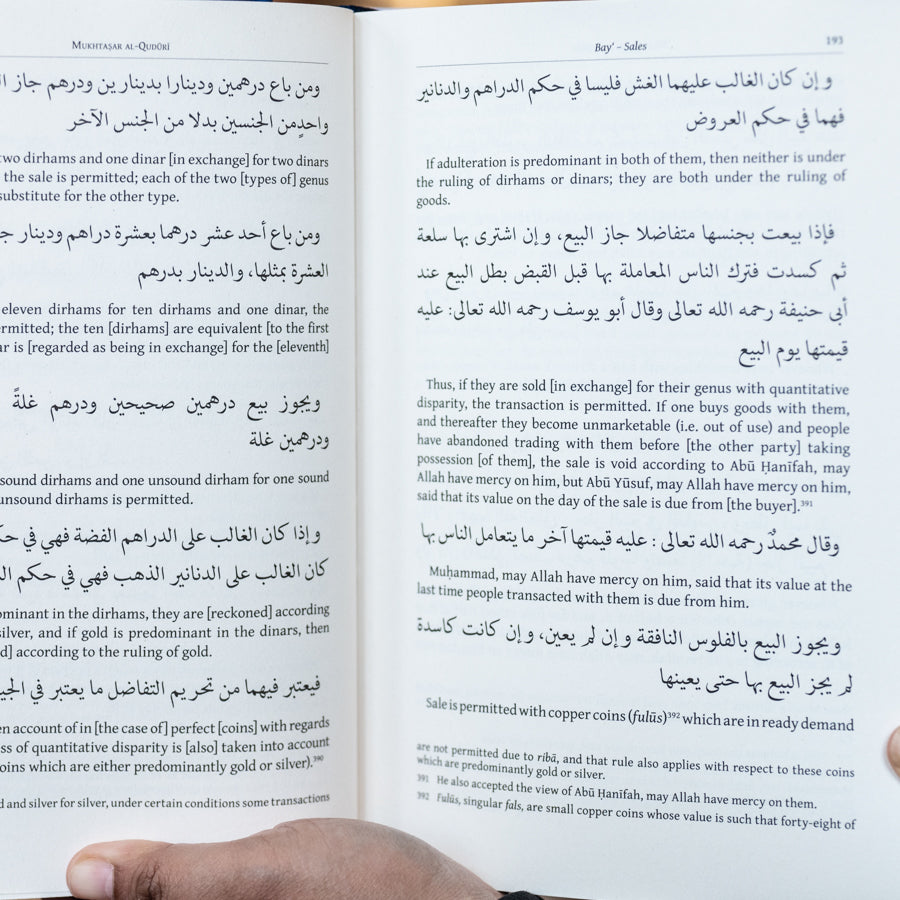 MUKHTAṢAR AL-QUDŪRĪ
ومن باع درهمين ودينارا بدينارين ودرهم جاز
واحدٍ من الجنسين بدلا من الجنس الآخر
two dirhams and one dinar [in exchange] for two dinars
the sale is permitted; each of the two [types of] genus
substitute for the other type.
ومن باع أحد عشر درهما بعشرة دراهم ودينار
العشرة بمثلها، والدينار بدرهم
eleven dirhams for ten dirhams and one dinar, the
rmitted; the ten [dirhams] are equivalent [to the first
ar is [regarded as being in exchange] for the [eleventh]
ويجوز بيع درهمين صحيحين ودرهم غلةً
ودرهمين غلة
sound dirhams and one unsound dirham for one sound
unsound dirhams is permitted.
وإذا كان الغالب على الدراهم الفضة فهي في
كان الغالب على الدنانير الذهب فهي في حكم
ominant in the dirhams, they are [reckoned] according
silver, and if gold is predominant in the dinars, then
d] according to the ruling of gold.
فيعتبر فيهما من تحريم التفاضل ما يعتبر في
en account of in [the case of] perfect [coins] with regards
ss of quantitative disparity is [also] taken into account
oins which are either predominantly gold or silver).390
d and silver for silver, under certain conditions some transactions
Bay' – Sales 193
وإن كان الغالب عليهما الغش فليسا في حكم الدراهم والدنانير
فهما في حكم العروض
If adulteration is predominant in both of them, then neither is under
the ruling of dirhams or dinars; they are both under the ruling of
goods.
فإذا بيعت بجنسها متفاضلا جاز البيع، وإن اشترى بها سلعة
ثم كسدت فترك الناس المعاملة بها قبل القبض بطل البيع عند
أبي حنيفة رحمه الله تعالى وقال أبو يوسف رحمه الله تعالى: عليه
قيمتها يوم البيع
Thus, if they are sold [in exchange] for their genus with quantitative
disparity, the transaction is permitted. If one buys goods with them,
and thereafter they become unmarketable (i.e. out of use) and people
have abandoned trading with them before [the other party] taking
possession [of them], the sale is void according to Abū Ḥanīfah, may
Allah have mercy on him, but Abū Yūsuf, may Allah have mercy on him,
said that its value on the day of the sale is due from [the buyer].391
وقال محمدٌ رحمه الله تعالى : عليه قيمتها آخر ما يتعامل الناس بها
Muḥammad, may Allah have mercy on him, said that its value at the
last time people transacted with them is due from him.
ويجوز البيع بالفلوس النافقة وإن لم يعين، وإن كانت كاسدة
لم يجز البيع بها حتى يعينها
Sale is permitted with copper coins (fulūs)392 which are in ready demand
are not permitted due to ribā, and that rule also applies with respect to these coins
which are predominantly gold or silver.
391 He also accepted the view of Abū Ḥanīfah, may Allah have mercy on them.
392 Fulūs, singular fals, are small copper coins whose value is such that forty-eight of